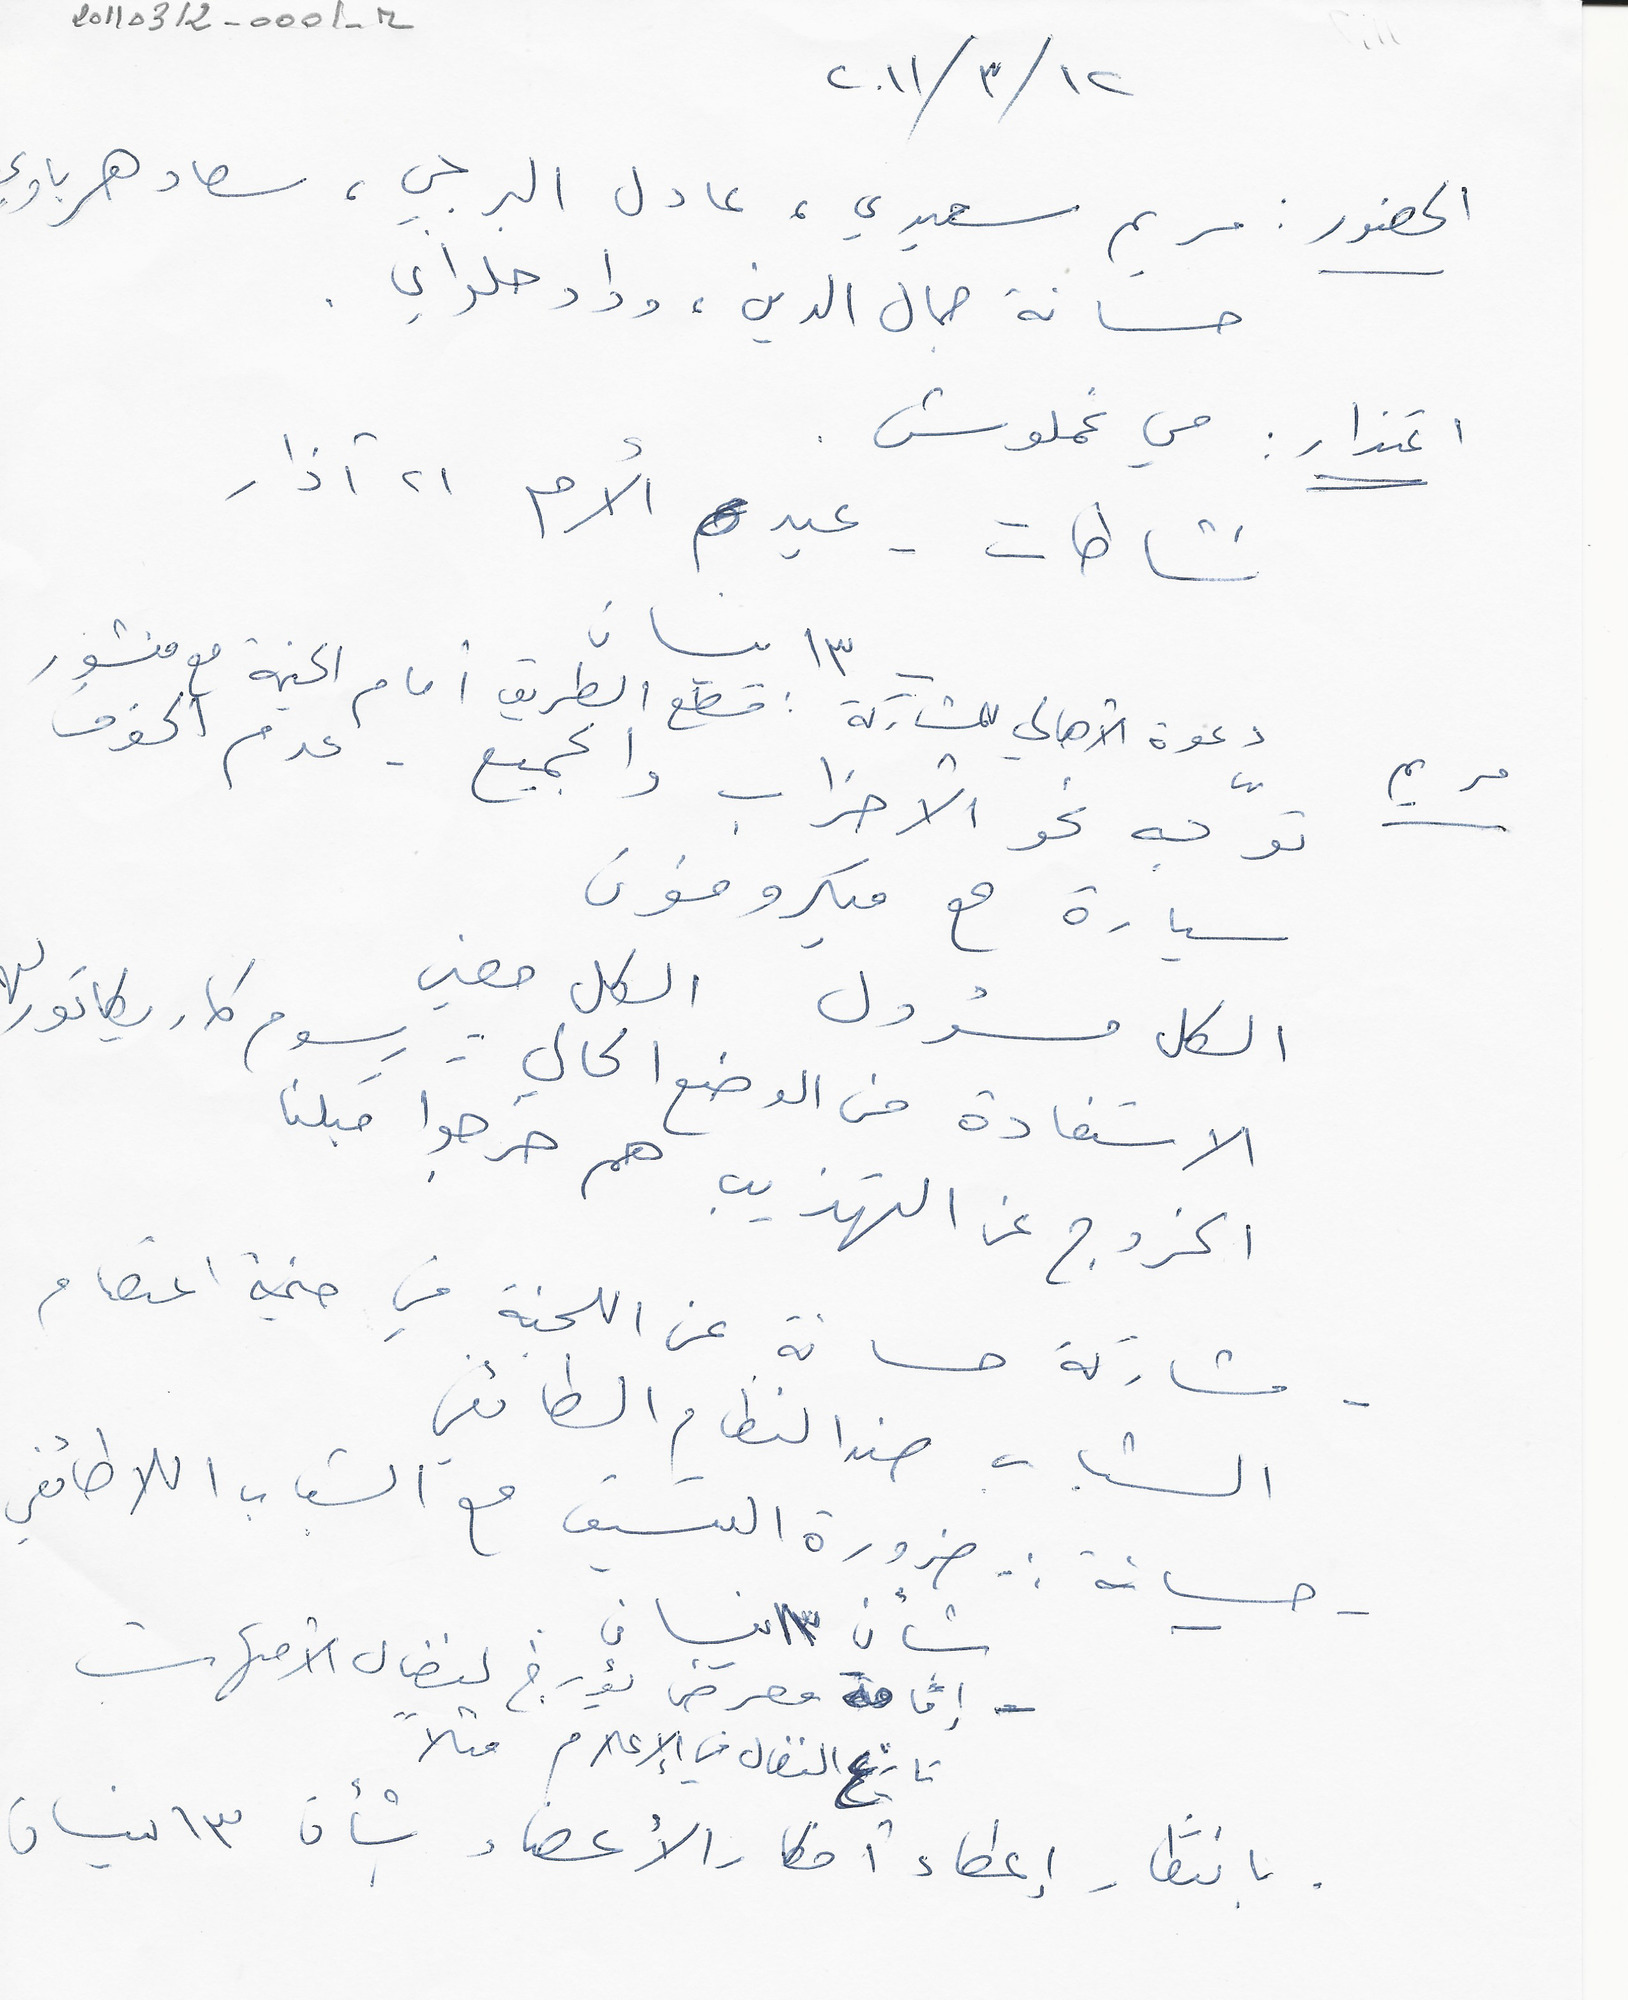 20110312-0001-M
٢٠١١/٣/١٢
الحضور: مريم سعيدي، عادل البرجي، سعاد هرباوي
حسانة جمال الدين، وداد حلواني.
اعتذار: مي غملوش.
نشاطات - عيد الأم ٢١ آذار
- ١٣ نيسان
دعوة الأهالي للمشاركة: قطع الطريق أمام الخيمة مع منشور
مريم توجّه نحو الأحزاب والجميع - عدم الخوف
سيارة مع ميكروفون
الكل مسؤول الكل معني
الاستفادة من الوضع الحالي :- رسوم كاريكاتور
الخروج عن التهذيب هم خرجوا قبلنا
- مشاركة حسانة عن اللجنة في خيمة اعتصام
الشباب ضد النظام الطائفي
- حسانة :- ضرورة التنسيق مع الشباب اللاطائفي
بشأن ١٣ نيسان
- إقامة معرض يؤرخ لنضال الأمهات
تاريخ النضال في الإعلام مثلاً
. بانتظار إعطاء أفكار الأعضاء بشأن ١٣ نيسان